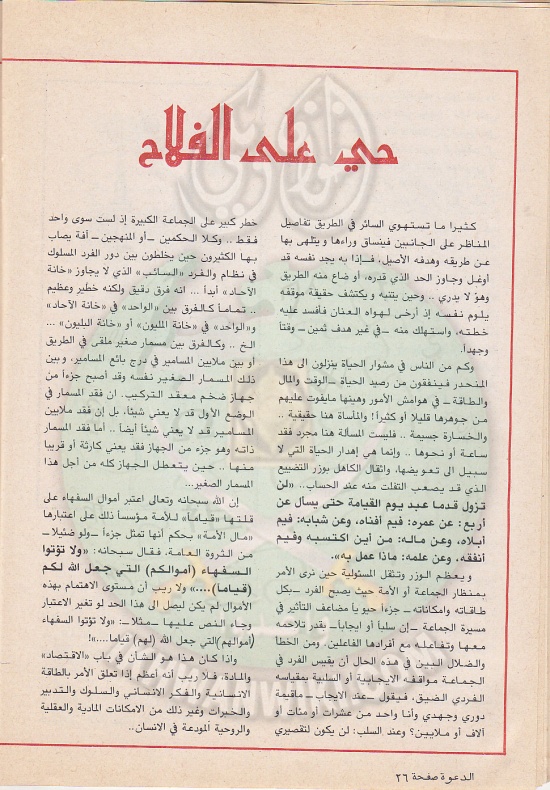 حي على الفلاح
كثيرا ما تستهوي السائر في الطريق تفاصيل
المناظر على الجانبين فينساق وراءها ويتلهى بها
عن طريقه وهدفه الأصيل، فإذا به يجد نفسه قد
أوغل وجاوز الحد الذي قدره، أو ضاع منه الطريق
وهو لا يدري .. وحين ينتبه ويكتشف حقيقة موقفه
يلوم نفسه إذ أرخى لهواه العنان فأفسد عليه
خطته، واستهلك منه ــ في غير هدف ثمين ــ وقتاً
وجهداً.
وكم من الناس في مشوار الحياة ينزلون الى هذا
المنحدر فينفقون من رصيد الحياة ــ الوقت والمال
والطاقة ــ في هوامش الأمور وهينها مايفوت عليهم
من جوهرها قليلا أو كثيراً! والمأساة هنا حقيقية ..
والخسارة جسيمة .. فليست المسألة هنا مجرد فقد
ساعة أو نحوها .. وإنما هي إهدار الحياة التي لا
سبيل الى تعويضها، واثقال الكاهل بوزر التضييع
الذي قد يصعب التفلت منه عند الحساب.. «لن
تزول قدما عبد يوم القيامة حتى يسأل عن
أربع: عن عمره: فيم أفناه، وعن شبابه: فيم
أبلاه، وعن ماله: من أين اكتسبه وفيم
أنفقه، وعن علمه: ماذا عمل به».
ويعظم الوزر وتثقل المسئولية حين نرى الأمر
بمنظار الجماعة أو الأمة حيث يصبح الفرد ــ بكل
طاقاته وامكاناته ــ جزءاً حيوياً مضاعف التأثير في
مسيرة الجماعة ــ إن سلباً أو ايجاباً ــ بقدر تلاحمه
معها وتفاعله مع أفرادها الفاعلين. ومن الخطأ
والضلال البين في هذه الحال أن يقيس الفرد في
الجماعة مواقفه الايجابية أو السلبية بمقياسه
الفردي الضيق، فيقول ــ عند الايجاب ــ ماقيمة
دوري وجهدي وأنا واحد من عشرات أو مئات أو
آلاف أو ملايين؟ وعند السلب: لن يكون لتقصيري
خطر كبير على الجماعة الكبيرة إذ لست سوى واحد
فقط .. وكلا الحكمين ــ أو المنهجين ــ آفة يصاب
بها الكثيرون حين يخلطون بين دور الفرد المسلوك
في نظام والفرد «السائب» الذي لا يجاوز «خانة
الآحاد» أبداً ... انه فرق دقيق ولكنه خطير وعظيم
.. تماماً كالفرق بين «الواحد» في «خانة الآحاد»
و«الواحد» في «خانة المليون» أو «خانة البليون» ...
الخ .. وكالفرق بين مسمار صغير ملقى في الطريق
أو بين ملايين المسامير في درج بائع المسامير، وبين
ذلك المسمار الصغير نفسه وقد أصبح جزءاً من
جهاز ضخم معقد التركيب. ان فقد المسمار في
الوضع الأول قد لا يعني شيئاً، بل إن فقد ملايين
المسامير قد لا يعني شيئاً أيضاً .. أما فقد المسمار
ذاته وهو جزء من الجهاز فقد يعني كارثة أو قريبا
منها .. حين يتعطل الجهاز كله من أجل هذا
المسمار الصغير...
إن الله سبحانه وتعالى اعتبر أموال السفهاء على
قلتها «قياما» للأمة مؤسساً ذلك على اعتبارها
«مال الأمة» بحكم أنها تمثل جزءاً ــ ولو ضئيلا ــ
من الثروة العامة، فقال سبحانه: «ولا تؤتوا
السفهاء (أموالكم) التي جعل الله لكم
(قياما)....» ولا ريب أن مستوى الاهتمام بهذه
الأموال لم يكن ليصل الى هذا الحد لو تغير الاعتبار
وجاء النص عليها ــ مثلا ــ: «ولا تؤتوا السفهاء
(أموالهم) التي جعل الله (لهم) قياما....»!
واذا كان هذا هو الشأن في باب «الاقتصاد»
والمادة، فلا ريب أنه أعظم إذا تعلق الأمر بالطاقة
الانسانية والفكر الانساني والسلوك والتدبير
والخبرات وغير ذلك من الامكانات المادية والعقلية
والروحية المودعة في الانسان..
الدعوة صفحة ٢٦